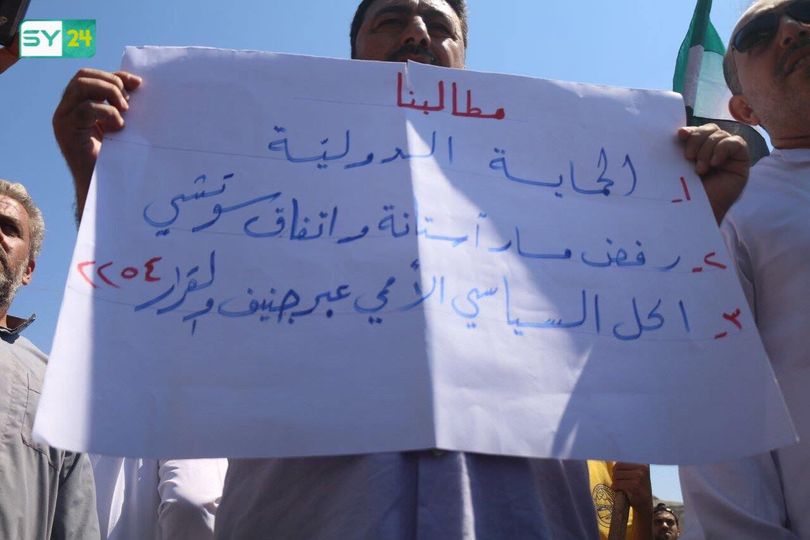 SY 24
مطالبنا
١- الحماية الدوليّة
٢- رفض مسار أستانة واتفاق سوتشي
٣- الحل السياسي الأممي عبر جنيف والقرار ٢٢٥٤